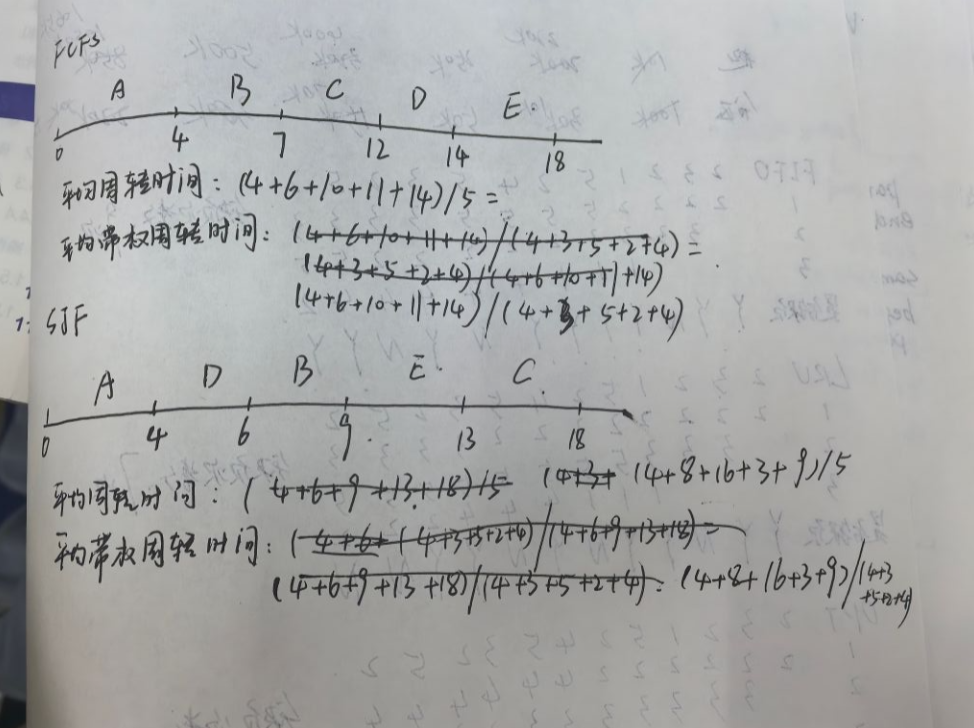 FCFS
A B C D E
0 4 7 12 14 18
平均周转时间：(4+6+10+11+14)/5=
平均带权周转时间：(4+6+10+11+14)/(4+3+5+2+4)=
(4+3+5+2+4)/(4+6+10+11+14)
(4+6+10+11+14)/(4+3+5+2+4)
SJF
A D B E C
0 4 6 9 13 18
平均周转时间：(4+6+9+13+18)/5 (4+3+ (4+8+16+3+9)/5
平均带权周转时间：(4+6+ (4+3+5+2+4)/(4+6+9+13+18)=
(4+6+9+13+18)/(4+3+5+2+4). (4+8+16+3+9)/(4+3
+5+2+4)